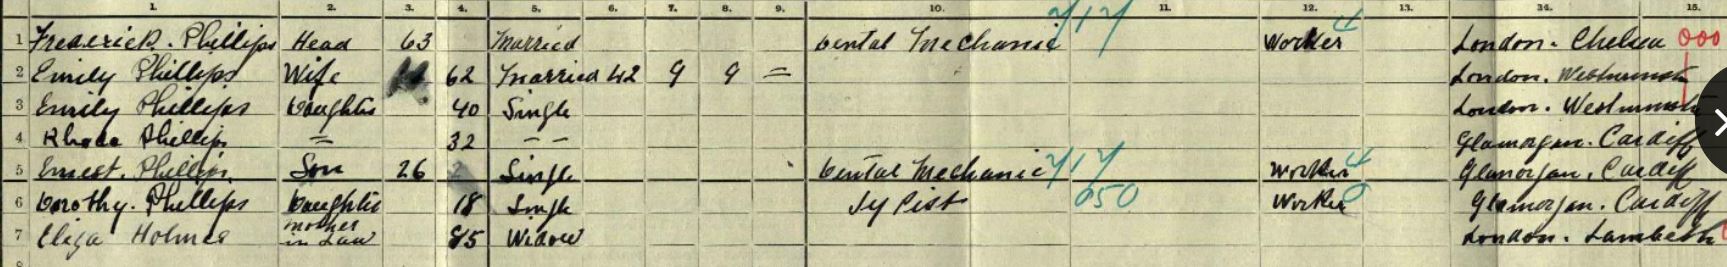 1. 2. 3. 4. 5. 6. 7. 8. 9. 10. 11. 12. 13. 14. 15.
1 Frederick. Phillips Head 63 Married Dental Mechanic 717 Worker 4 London. Chelsea 000
2 Emily Phillips Wife 62 Married 42 9 9 = London. Westminste
3 Emily Phillips Daughter 40 Single London. Westminste
4 Rhoda Phillips = 32 - - Glamorgan. Cardiff
5 Ernest. Phillips Son 26 Single Dental Mechanic 717 Worker 4 Glamorgan. Cardiff
6 Dorothy. Phillips Daughter 18 Single Ty Pist 050 Worker 0 Glamorgan. Cardiff
7 Eliza Holmes mother in Law 85 Widow London. Lambeth
8